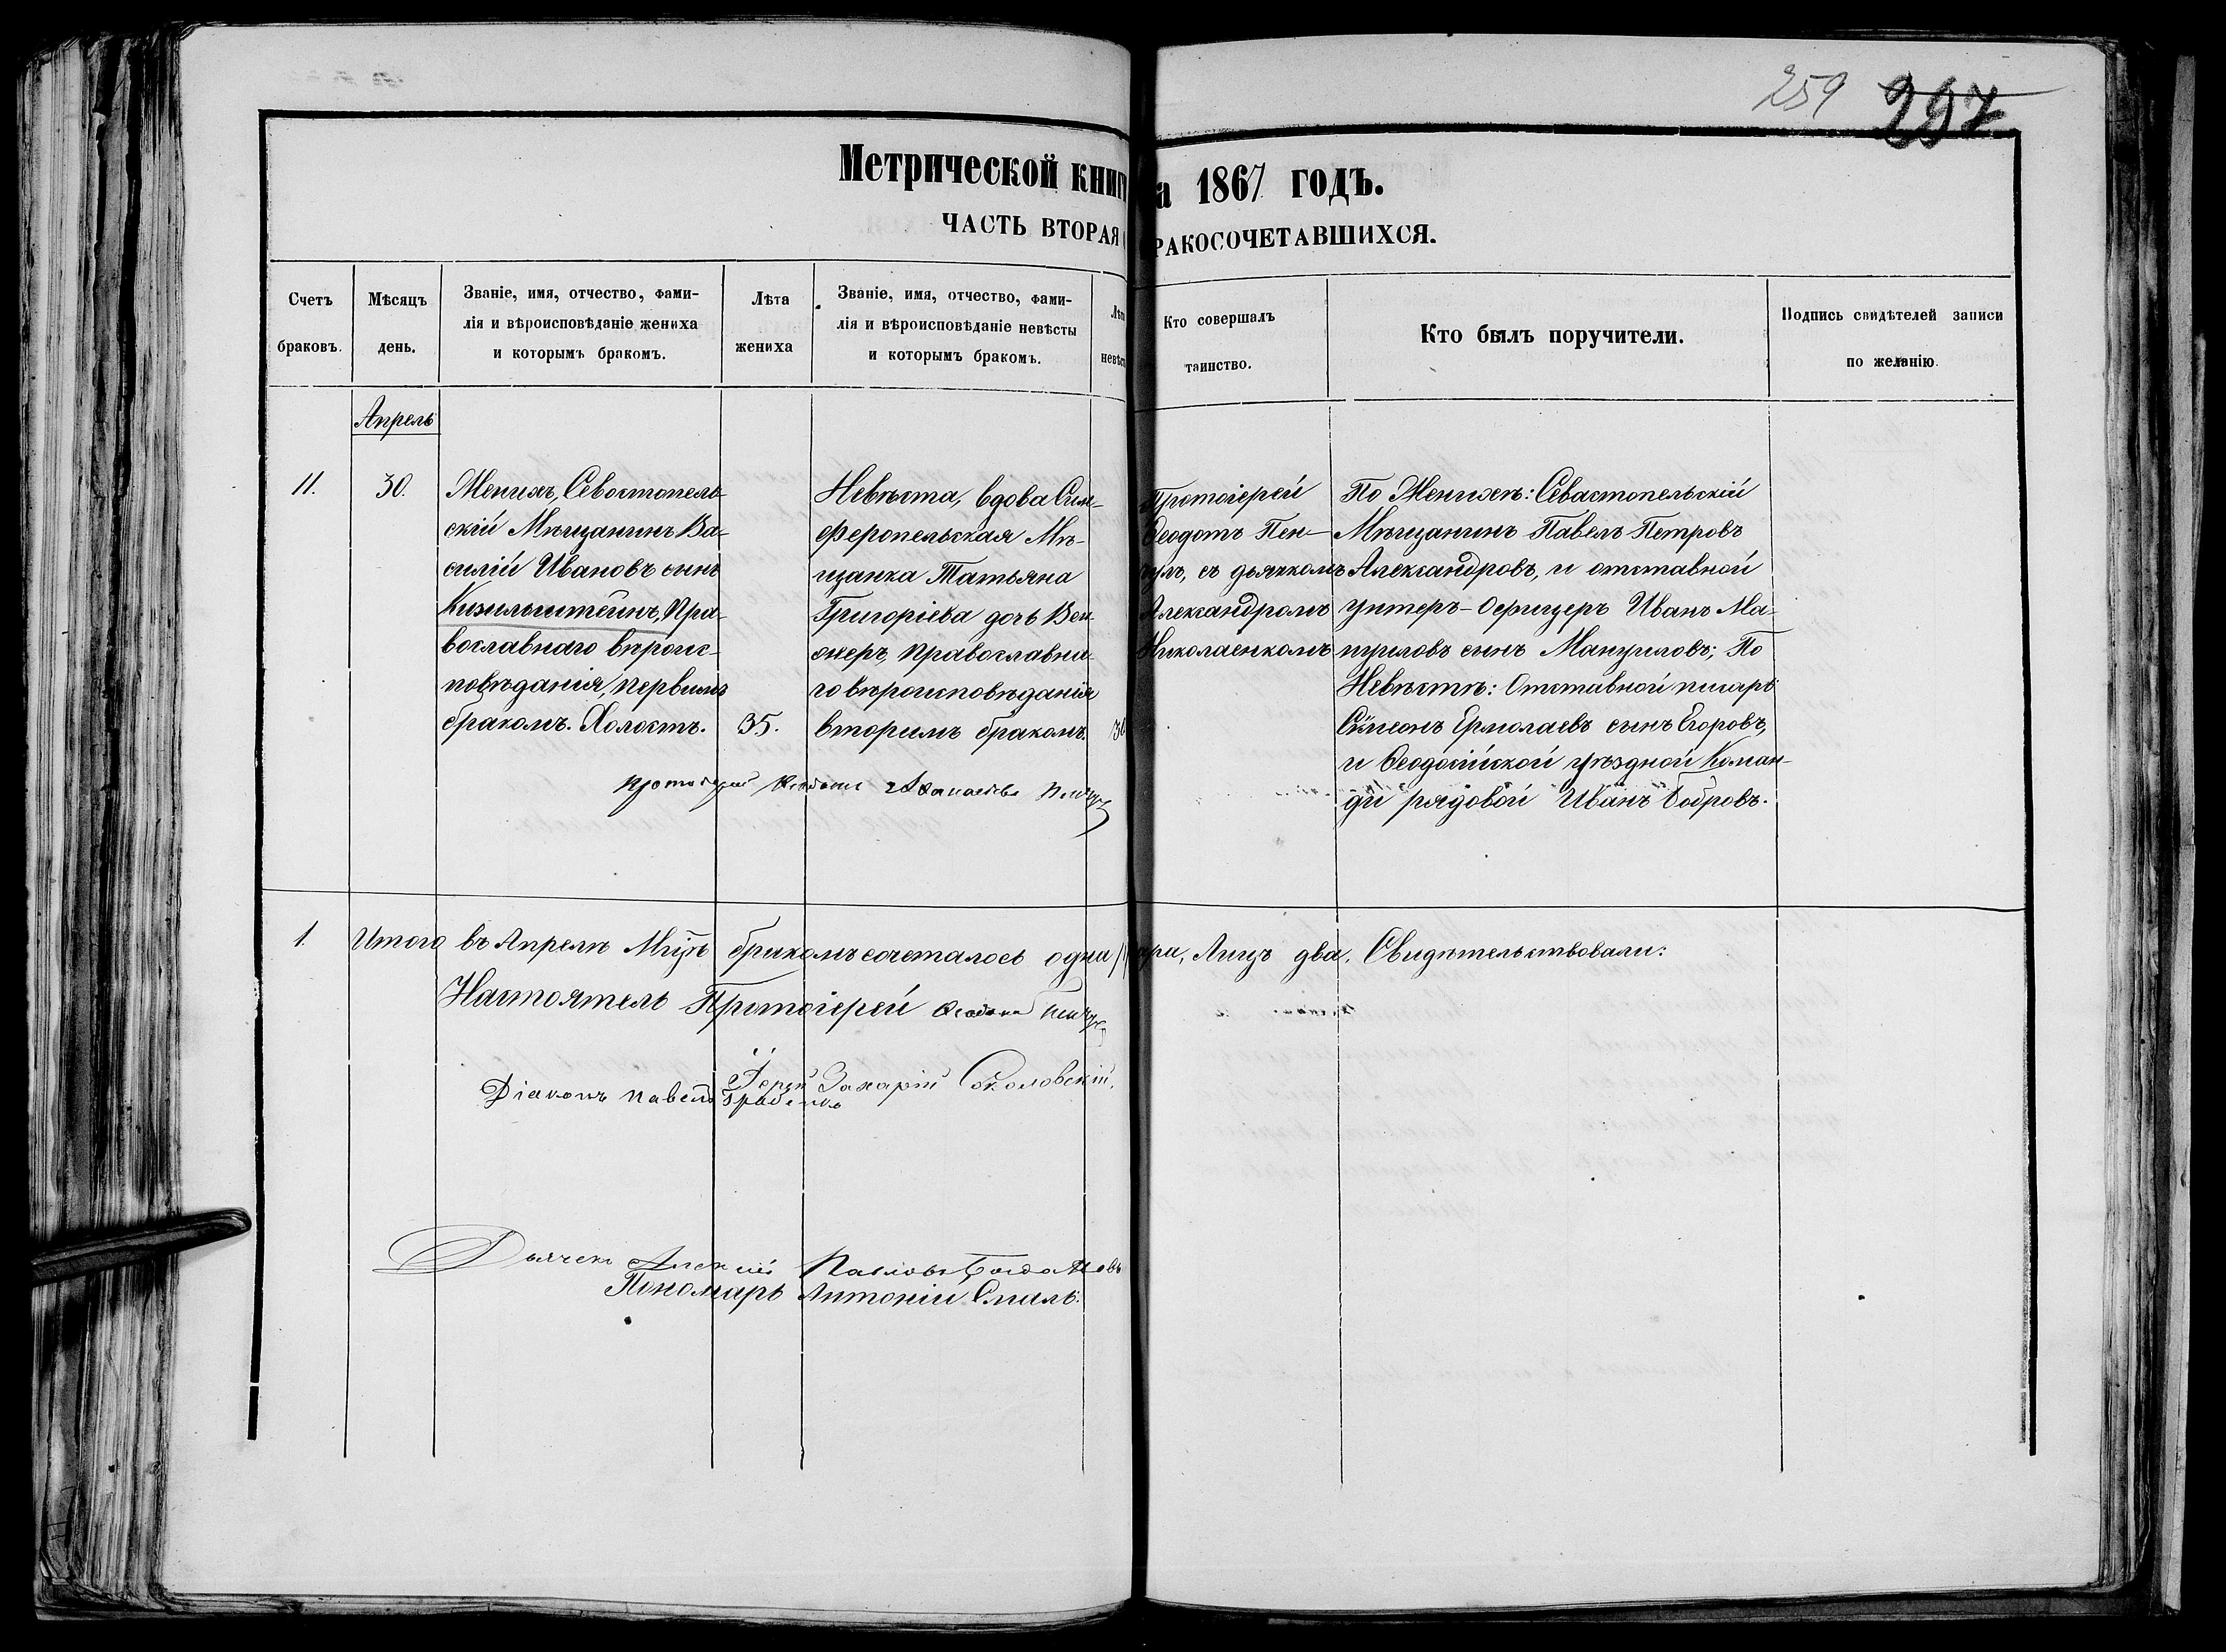 259 297
Метрической книг
а 1867 годъ.
ЧАСТЬ ВТОРАЯ
РАКОСОЧЕТАВШИХСЯ.
Счетъ
браковъ.
Мѣсяцъ
день.
Званіе, имя, отчество, фами-
лія и вѣроисповѣданіе жениха
и которымъ бракомъ.
Лѣта
жениха
Званіе, имя, отчество, фами-
лія и вѣроисповѣданіе невѣсты
и которымъ бракомъ.
Лѣт
невѣст
Кто совершалъ
таинство.
Кто былъ поручители.
Подпись свидѣтелей записи
по желанію.
Апрель
11.
30.
Женихъ, Севостопель-
скій Мѣщанинъ Ва-
силій Ивановъ сынъ
Кизильштейнъ, Пра-
вославнаго вѣроис-
повѣданія, первимъ
бракомъ. Холостъ.
35.
Невѣста, вдова Сим-
феропельская Мѣ-
щанка Татьяна
Григоріева дочь Вен-
жеръ, Православна-
го вѣроисповѣданія
вторимъ бракомъ.
30
Протоіерей
Ѳеодотъ Пен-
чулъ, съ дьячкомъ
Александромъ
Николаенкомъ
По Женихѣ: Севастопельскій
Мѣщанинъ Павелъ Петровъ
Александровъ, и отставной
Унтеръ-Офицеръ Иванъ Ма-
нуиловъ сынъ Мануиловъ; По
Невѣстѣ: Отставной писарь
Сѵмеонъ Ермолаевъ сынъ Егоровъ,
и Ѳеодосійской уѣздной Коман-
ди рядовой Иванъ Бобровъ.
1.
Итого въ Апрелѣ Мцѣ бракомъ сочеталось одна пара, Лицъ два. Свидѣтельствовали:
Настоятель Протоіерей
Іерей Захарій Соколовскій.
Діаконъ Павелъ
Дьячекъ Алексій Павловъ Богдановъ
Пономарь Антоній Смаль.